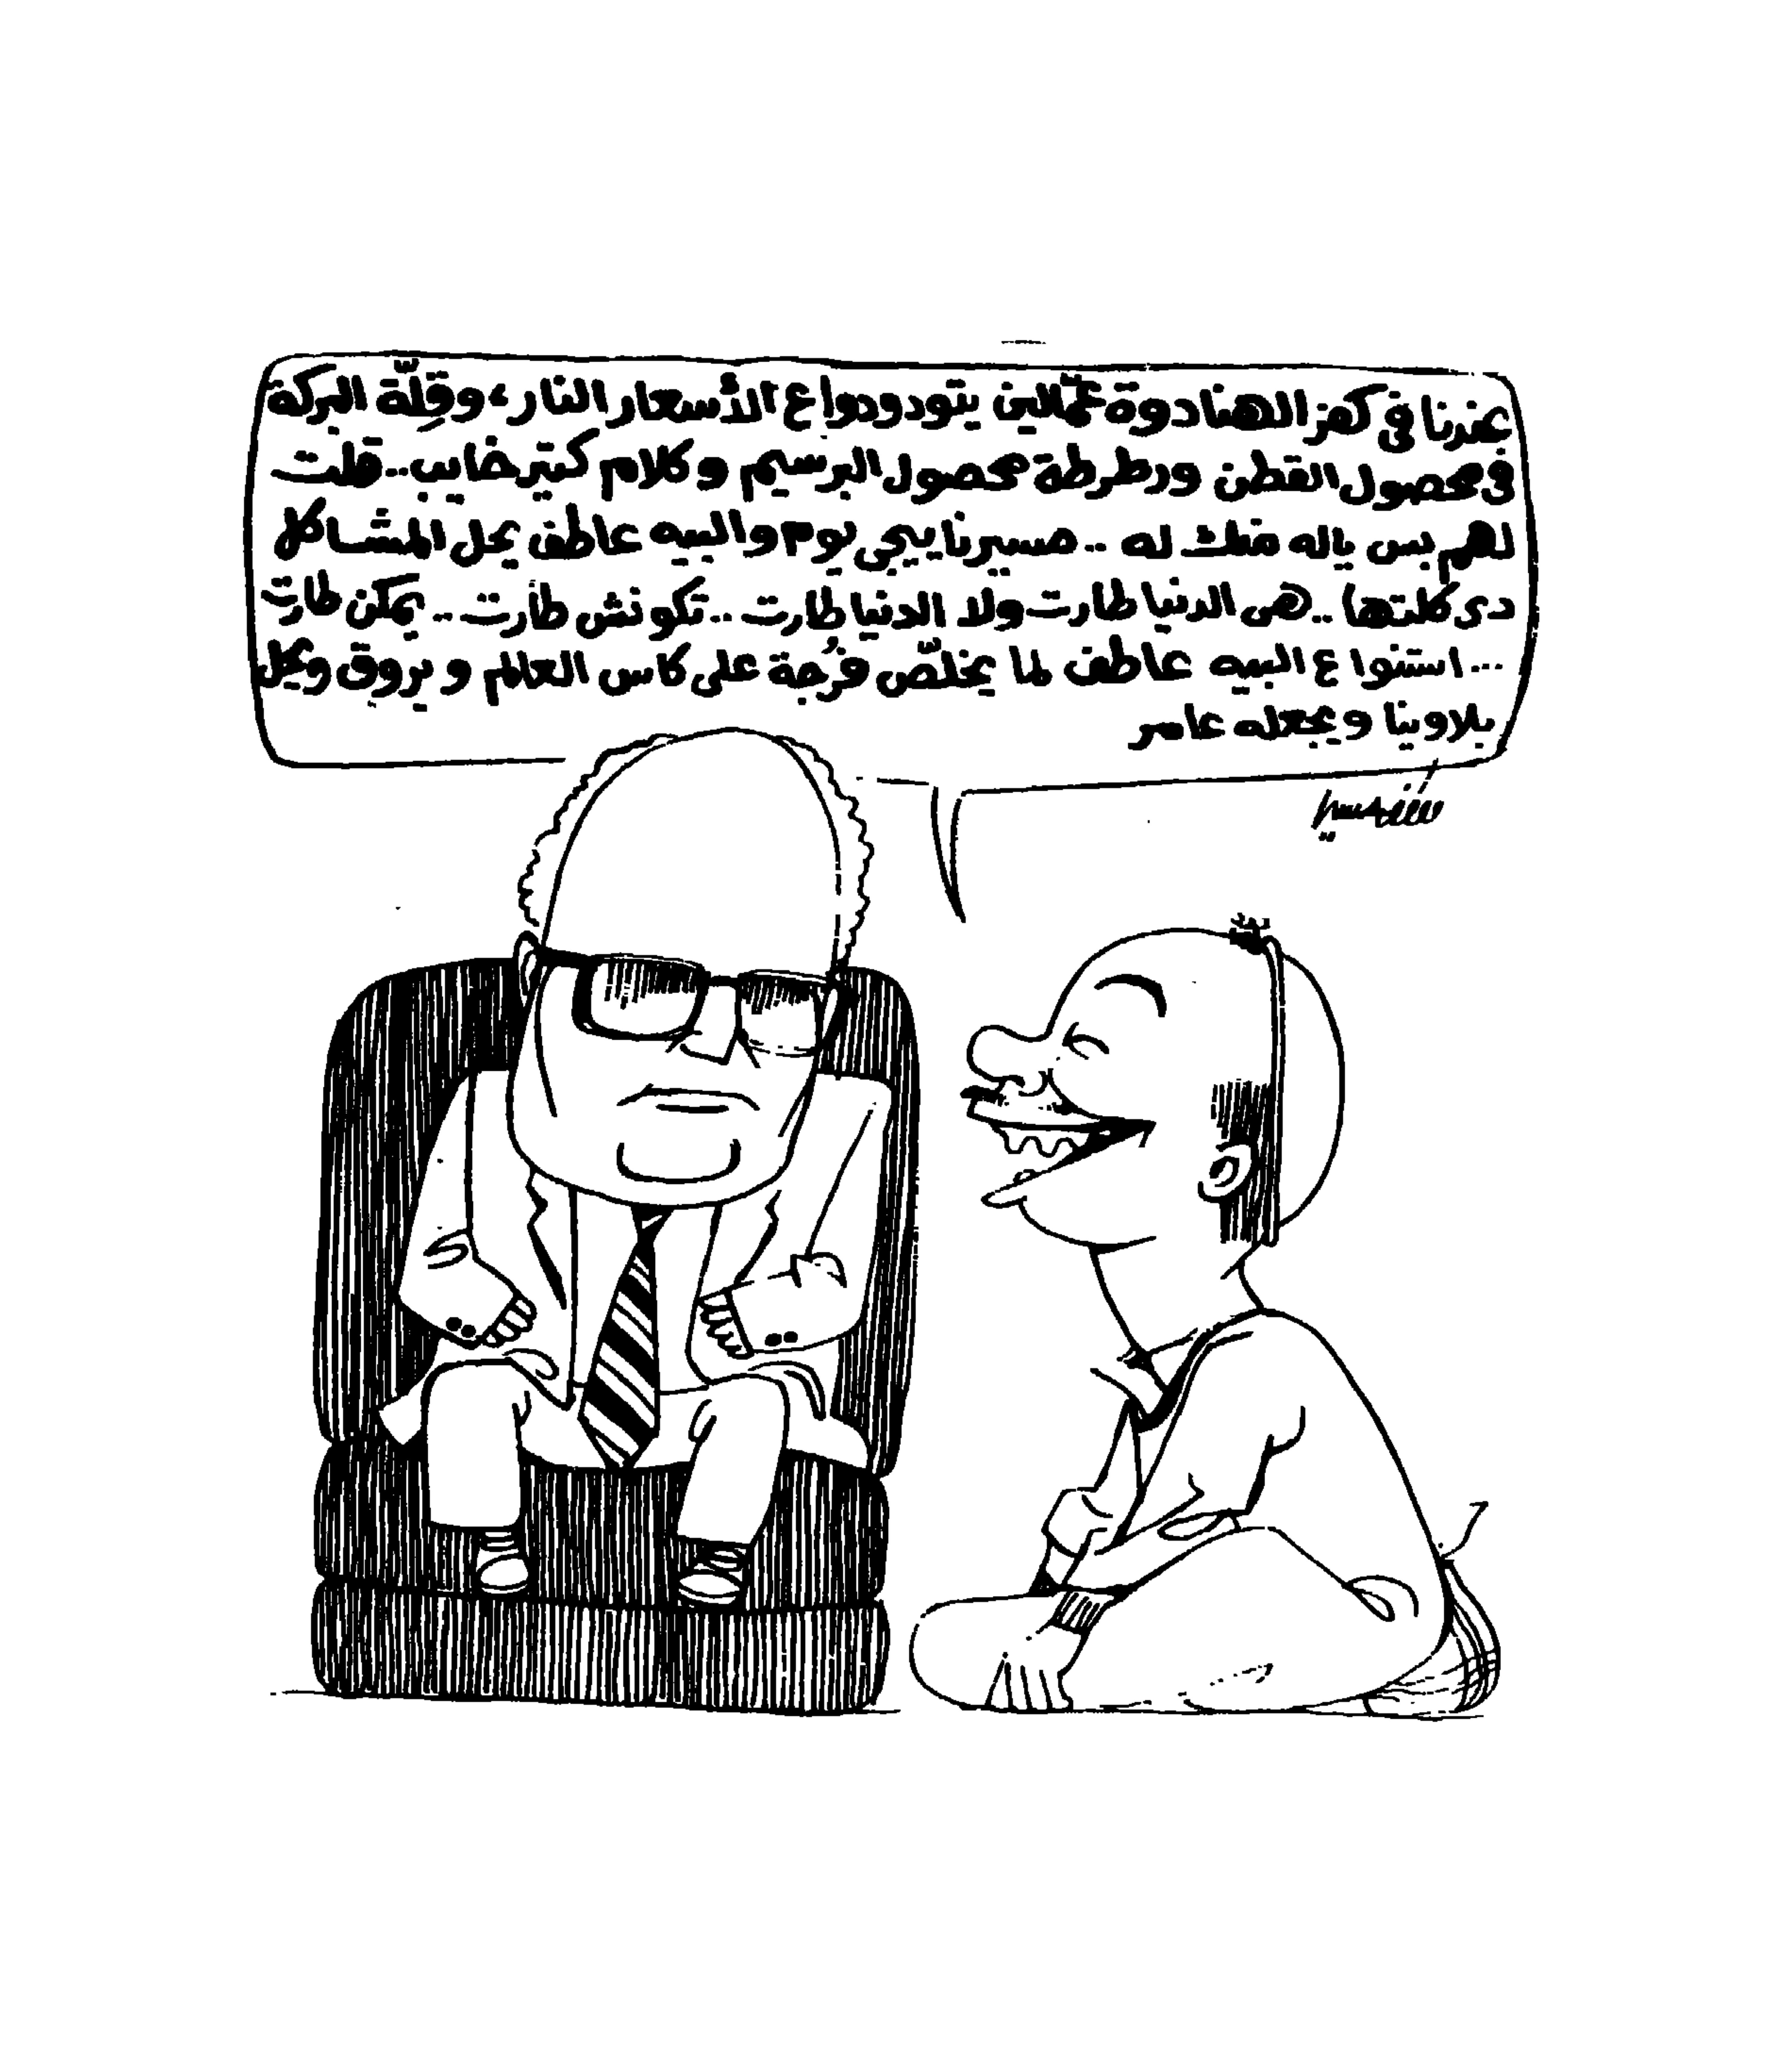 عندنا فى كفر الهنادوة عمالين يتودودوا ع الأسعار النار، وقلّة البركة
فى محصول القطن ورطرطة محصول البرسيم وكلام كتير خايب.. قلت
لهم بس ياله منك له .. مسيرنا ييجى يوم والبيه عاطف يحل المشاكل
دى كلتها.. هى الدنيا طارت ولا الدنيا طارت.. تكونش طارت.. يمكن طارت
... استنوا ع البيه عاطف لما يخلّص فرُجة على كاس العالم ويروق ويحل
بلاوينا ويجعله عامر